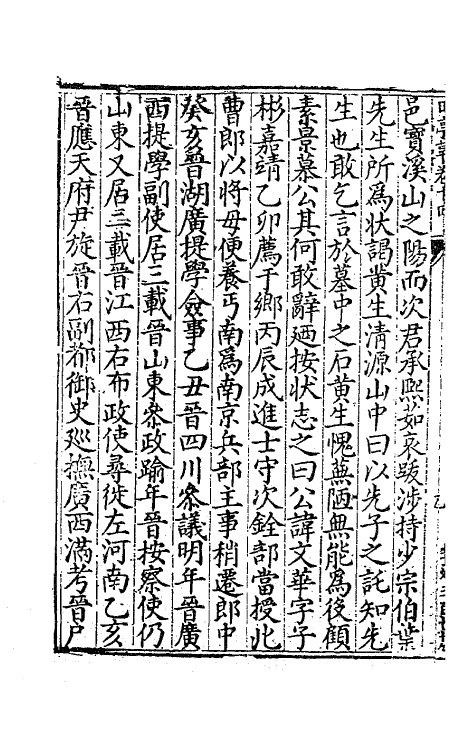 邑寶溪山之陽而次君承熙茹哀跋涉持少宗伯葉
先生所為狀謁黄生清源山中曰以先子之託知先
生也敢乞言於墓中之石黄生愧蕪陋無能為役顧
素景慕公其何敢辭廼按狀志之曰公諱文華字子
彬嘉靖乙卯薦于鄉丙辰成進士守次銓部當授北
曹郎以將母便養丐南為南京兵部主事稍遷郎中
癸亥晉湖廣提學僉事乙丑晉四川叅議明年晉廣
西提學副使居三載晉山東叅政踰年晉按察使仍
山東又居三載晉江西右布政使尋徙左河南乙亥
晉應天府尹旋晉右副都御史廵撫廣西滿考晉戶